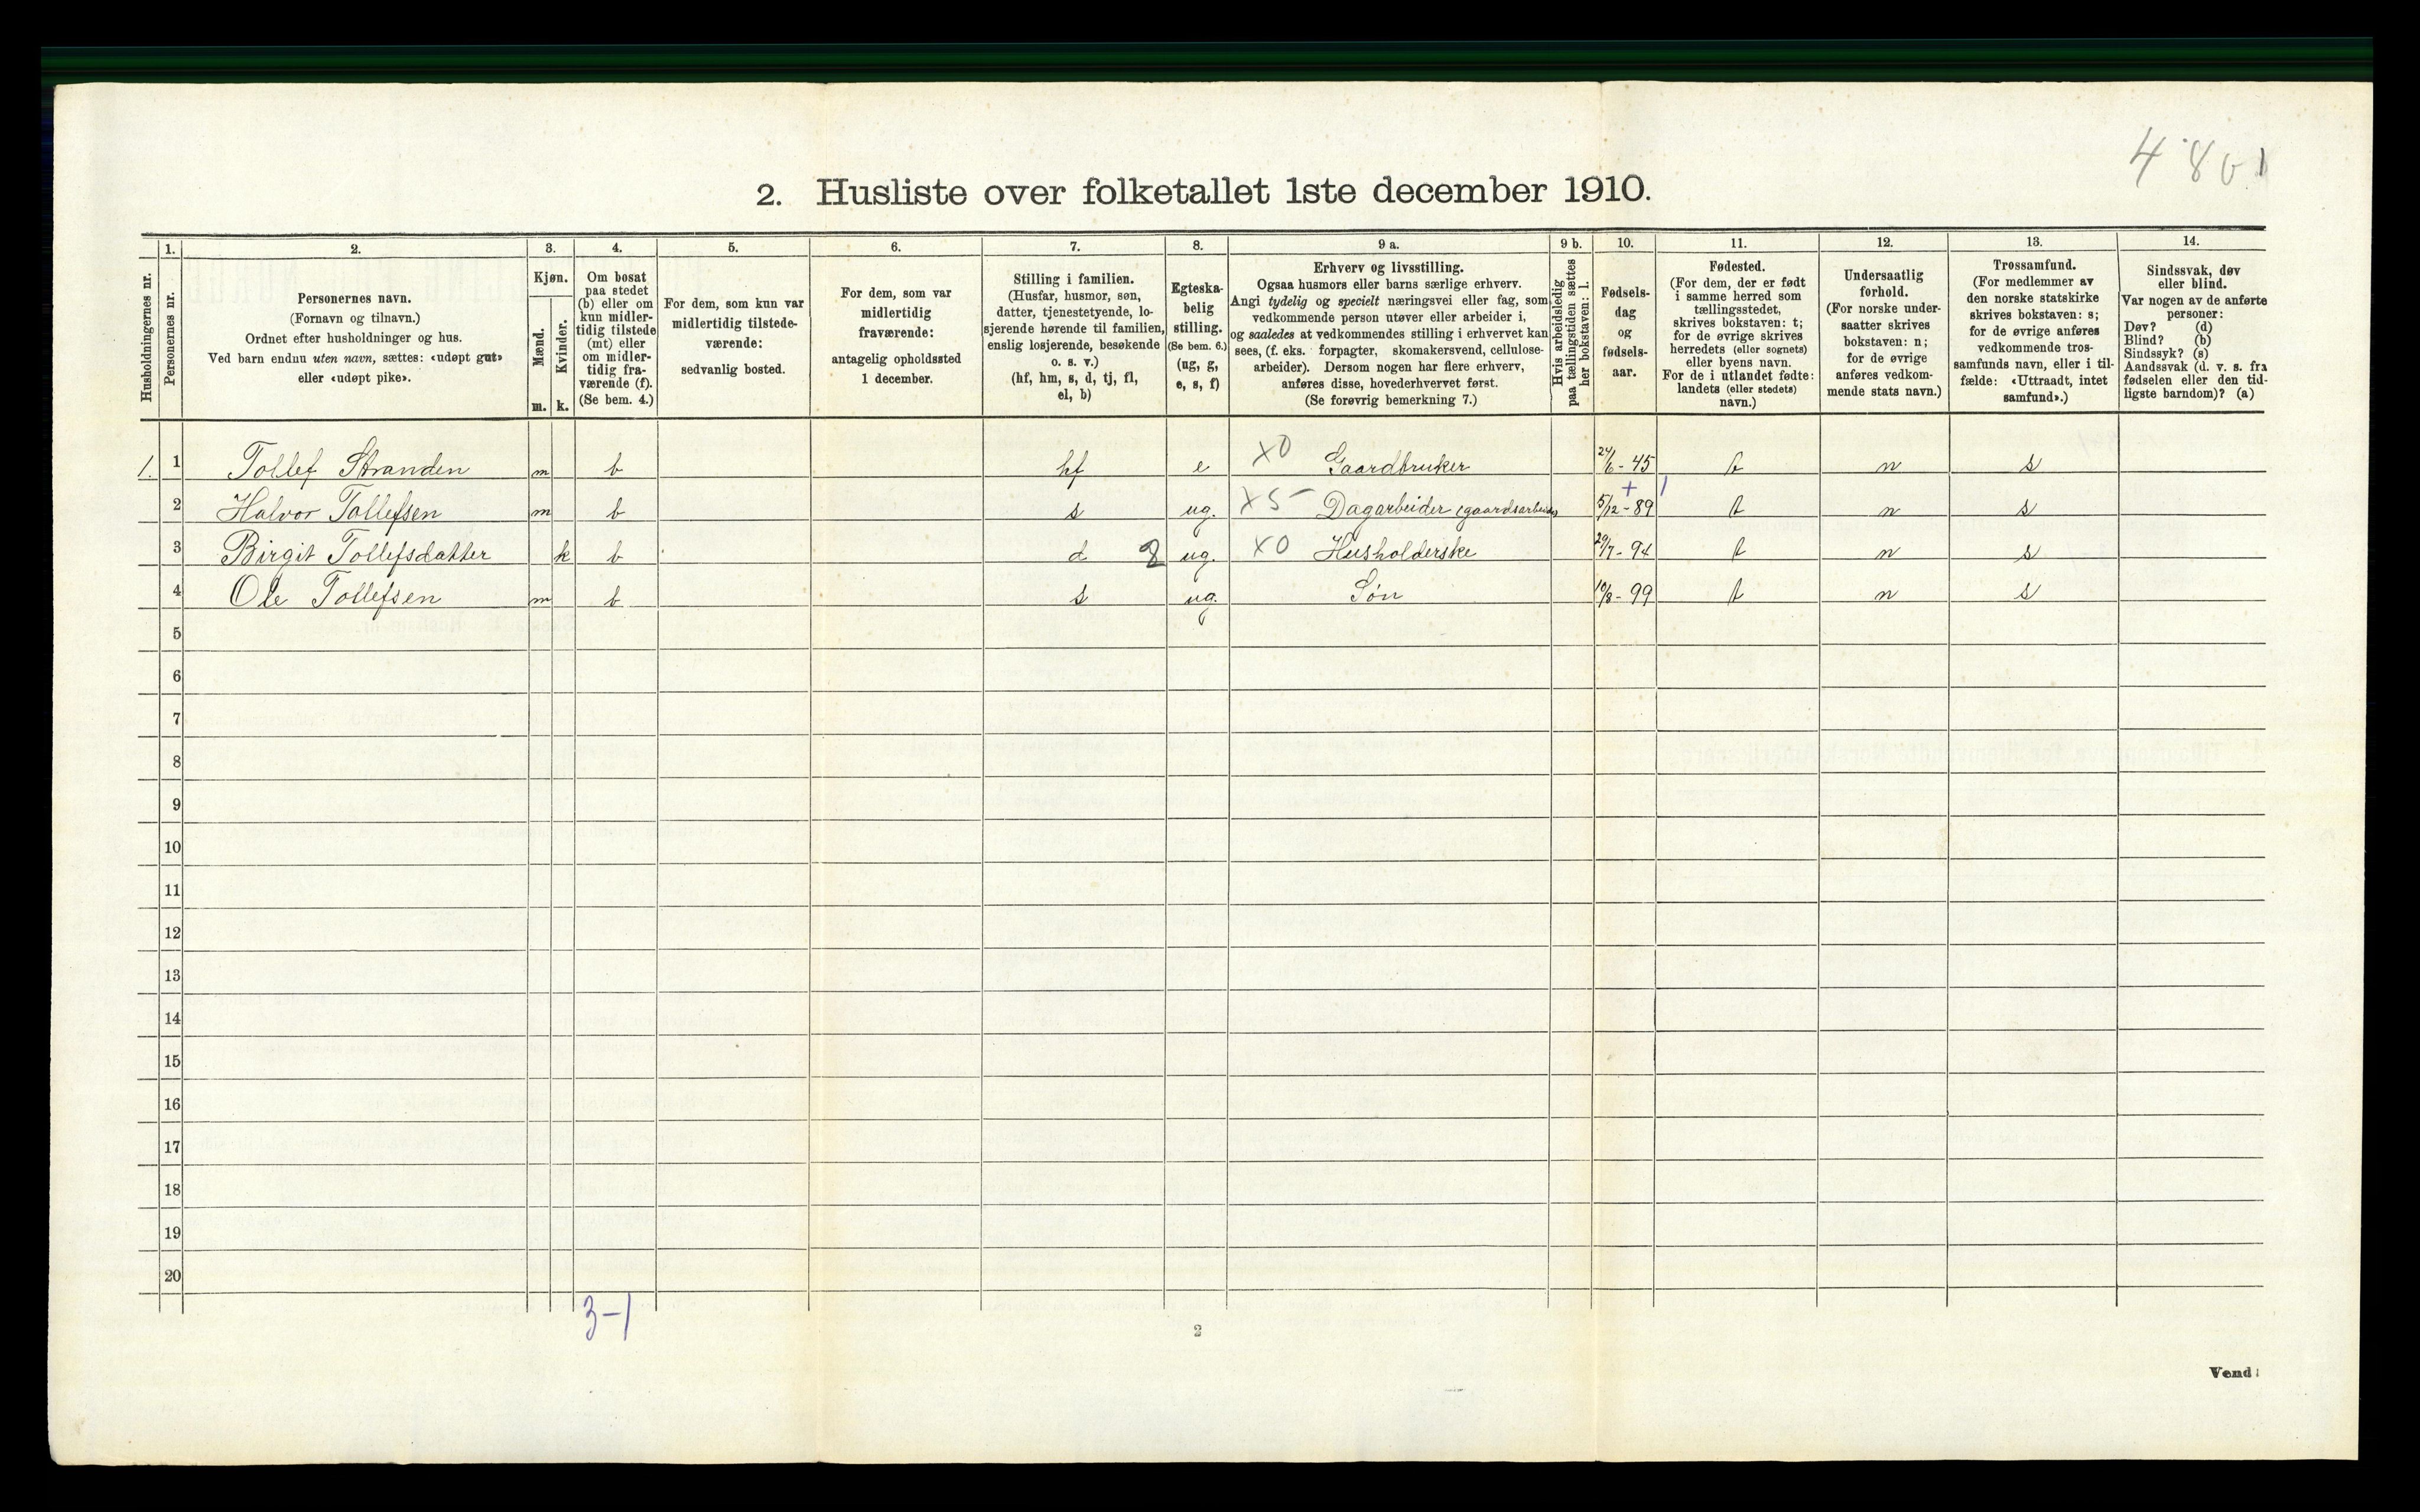 4801
2. Husliste over folketallet 1ste december 1910.
1. 2. 3. 4. 5. 6. 7. 8. 9 a. 9 b. 10. 11. 12. 13. 14.
Husholdningernes nr.
Personernes nr.
Personernes navn.
(Fornavn og tilnavn.)
Ordnet efter husholdninger og hus.
Ved barn endnu uten navn, sættes: «udøpt gut»
eller «udøpt pike».
Kjøn.
Mænd.
Kvinder.
m. k.
Om bosat
paa stedet
(b) eller om
kun midler-
tidig tilstede
(mt) eller
om midler-
tidig fra-
værende (f).
(Se bem. 4.)
For dem, som kun var
midlertidig tilstede-
værende:
sedvanlig bosted.
For dem, som var
midlertidig
fraværende:
antagelig opholdssted
1 december.
Stilling i familien.
(Husfar, husmor, søn,
datter, tjenestetyende, lo-
sjerende hørende til familien,
enslig losjerende, besøkende
o. s. v.)
(hf, hm, s, d, tj, fl,
el, b)
Egteska-
belig
stilling.
(Se bem. 6.)
(ug, g,
e, s, f)
Erhverv og livsstilling.
Ogsaa husmors eller barns særlige erhverv.
Angi tydelig og specielt næringsvei eller fag, som
vedkommende person utøver eller arbeider i,
og saaledes at vedkommendes stilling i erhvervet kan
sees, (f. eks. forpagter, skomakersvend, cellulose-
arbeider). Dersom nogen har flere erhverv,
anføres disse, hovederhvervet først.
(Se forøvrig bemerkning 7.)
Hvis arbeidsledig
paa tællingstiden sættes
her bokstaven: l.
Fødsels-
dag
og
fødsels-
aar.
Fødested.
(For dem, der er født
i samme herred som
tællingsstedet,
skrives bokstaven: t;
for de øvrige skrives
herredets (eller sognets)
eller byens navn.
For de i utlandet fødte:
landets (eller stedets)
navn.)
Undersaatlig
forhold.
(For norske under-
saatter skrives
bokstaven: n;
for de øvrige
anføres vedkom-
mende stats navn.)
Trossamfund.
(For medlemmer av
den norske statskirke
skrives bokstaven: s;
for de øvrige anføres
vedkommende tros-
samfunds navn, eller i til-
fælde: «Uttraadt, intet
samfund».)
Sindssvak, døv
eller blind.
Var nogen av de anførte
personer:
Døv? (d)
Blind? (b)
Sindssyk? (s)
Aandssvak (d. v. s. fra
fødselen eller den tid-
ligste barndom)? (a)
1. 1 Tollef Stranden m b hf e X0 Gaardbruker 24/6 - 45 t n s
+ 1
2 Halvor Tollefsen m b s ug. X5 Dagarbeider (gaardsarbeide) 5/12 - 89 t n s
3 Birgit Tollefsdatter k b d 8 ug. X0 Husholderske 29/7 - 94 t n s
4 Ole Tollefsen m b s ug. Søn 10/8 - 99 t n s
5
6
7
8
9
10
11
12
13
14
15
16
17
18
19
20
3-1
2
Vend!